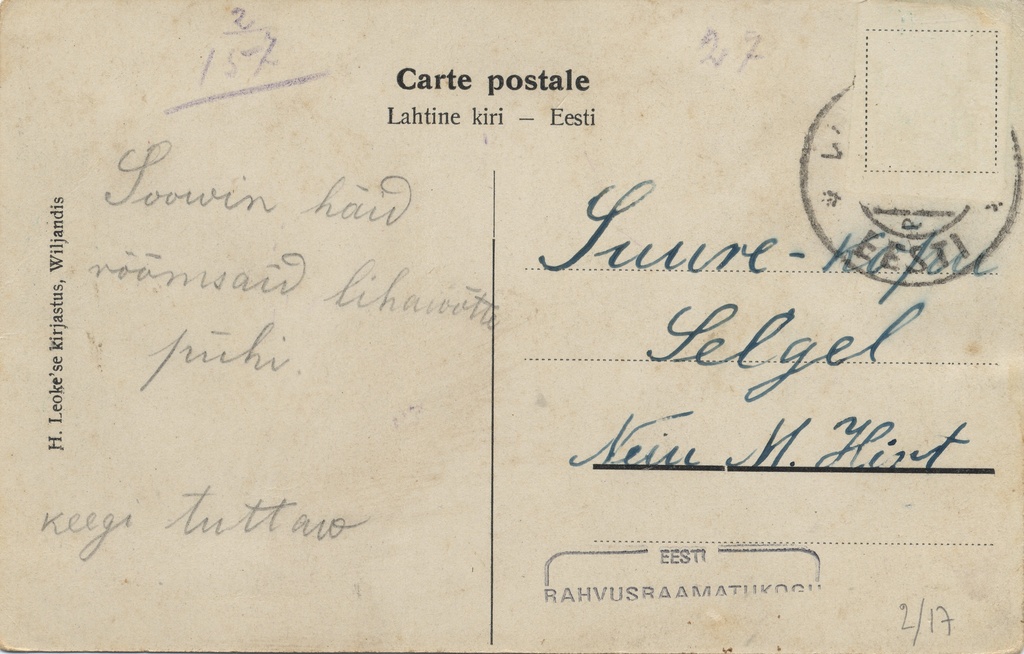 2
157
27
Carte postale
Lahtine kiri – Eesti
H. Leoke'se kirjastus, Wiljandis
Soowin häid
röömsaid lihawõtte
pühi.
keegi tuttaw
EESTI
Suure-Kõpu
Selgel
Nein M. Hirt
EESTI
RAHVUSRAAMATUKOGU
2/17